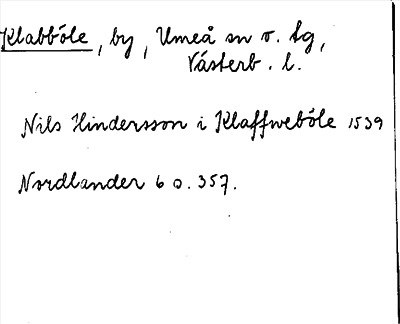 Klabböle, by, Umeå sn o. tg,
Västerb. l.
Nils Hindersson i Klaffweböle 1539
Nordlander 6 s. 357.